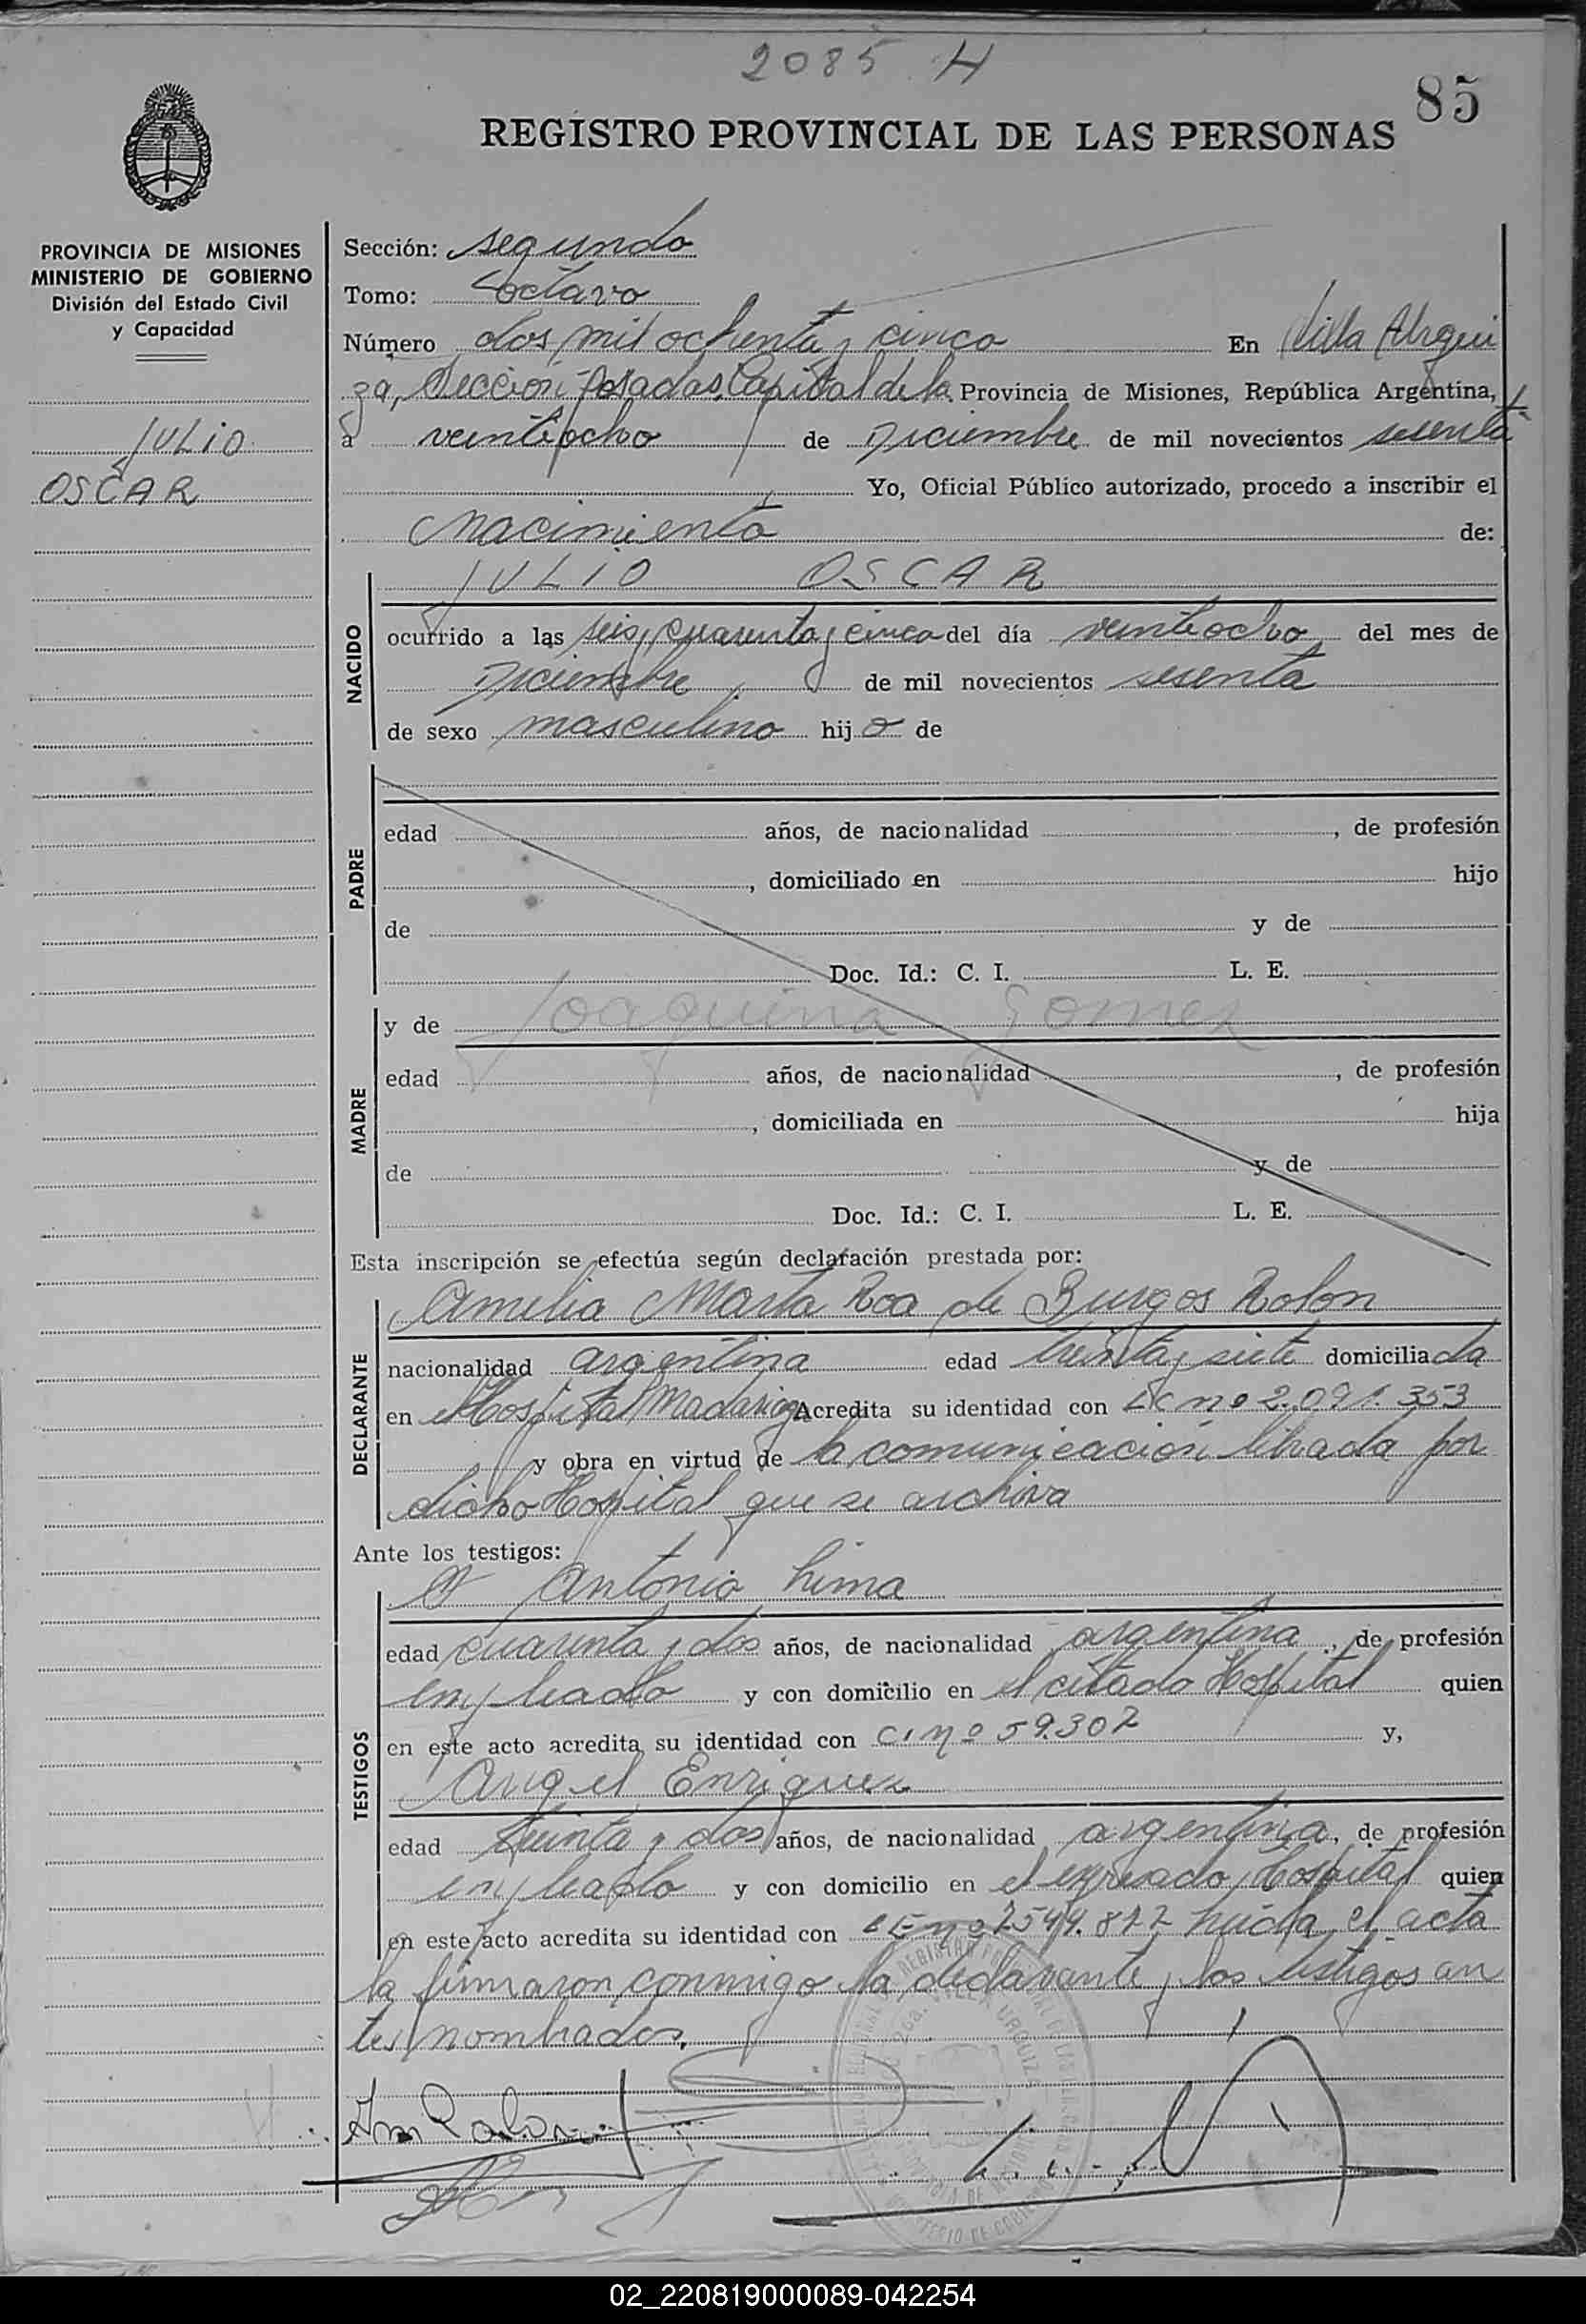 2085 H
85
REGISTRO PROVINCIAL DE LAS PERSONAS
PROVINCIA DE MISIONES
MINISTERIO DE GOBIERNO
División del Estado Civil
y Capacidad
JULIO
OSCAR
Sección: segundo
Tomo: Octavo
Número dos mil ochenta y cinco En Villa Urqui
za, Sección Posadas, Capital de la Provincia de Misiones, República Argentina,
a veintiocho de Diciembre de mil novecientos sesenta
Yo, Oficial Público autorizado, procedo a inscribir el
Nacimiento de:
NACIDO
JULIO OSCAR
ocurrido a las seis y cuarenta y cinco del día veintiocho del mes de
Diciembre de mil novecientos sesenta
de sexo masculino hijo de
PADRE
edad años, de nacionalidad , de profesión
, domiciliado en hijo
de y de
Doc. Id.: C. I. L. E.
MADRE
y de Joaquina Gomez
edad años, de nacionalidad , de profesión
, domiciliada en hija
de y de
Doc. Id.: C. I. L. E.
Esta inscripción se efectúa según declaración prestada por:
DECLARANTE
Amelia Marta Roa de Burgos Rolon
nacionalidad argentina edad treinta y siete domiciliada
en Hospital Madariaga Acredita su identidad con LC nº 2.091.353
y obra en virtud de la comunicación librada por
dicho Hospital que se archiva
Ante los testigos:
TESTIGOS
Antonio Lima
edad cuarenta y dos años, de nacionalidad argentina, de profesión
empleado y con domicilio en el citado Hospital quien
en este acto acredita su identidad con CI nº 59.302 y,
Angel Enriquez
edad treinta y dos años, de nacionalidad argentina, de profesión
empleado y con domicilio en el expresado Hospital quien
en este acto acredita su identidad con LE nº 7544.827 leída el acta
la firmaron conmigo la declarante y los testigos an
tes nombrados.
02_220819000089-042254